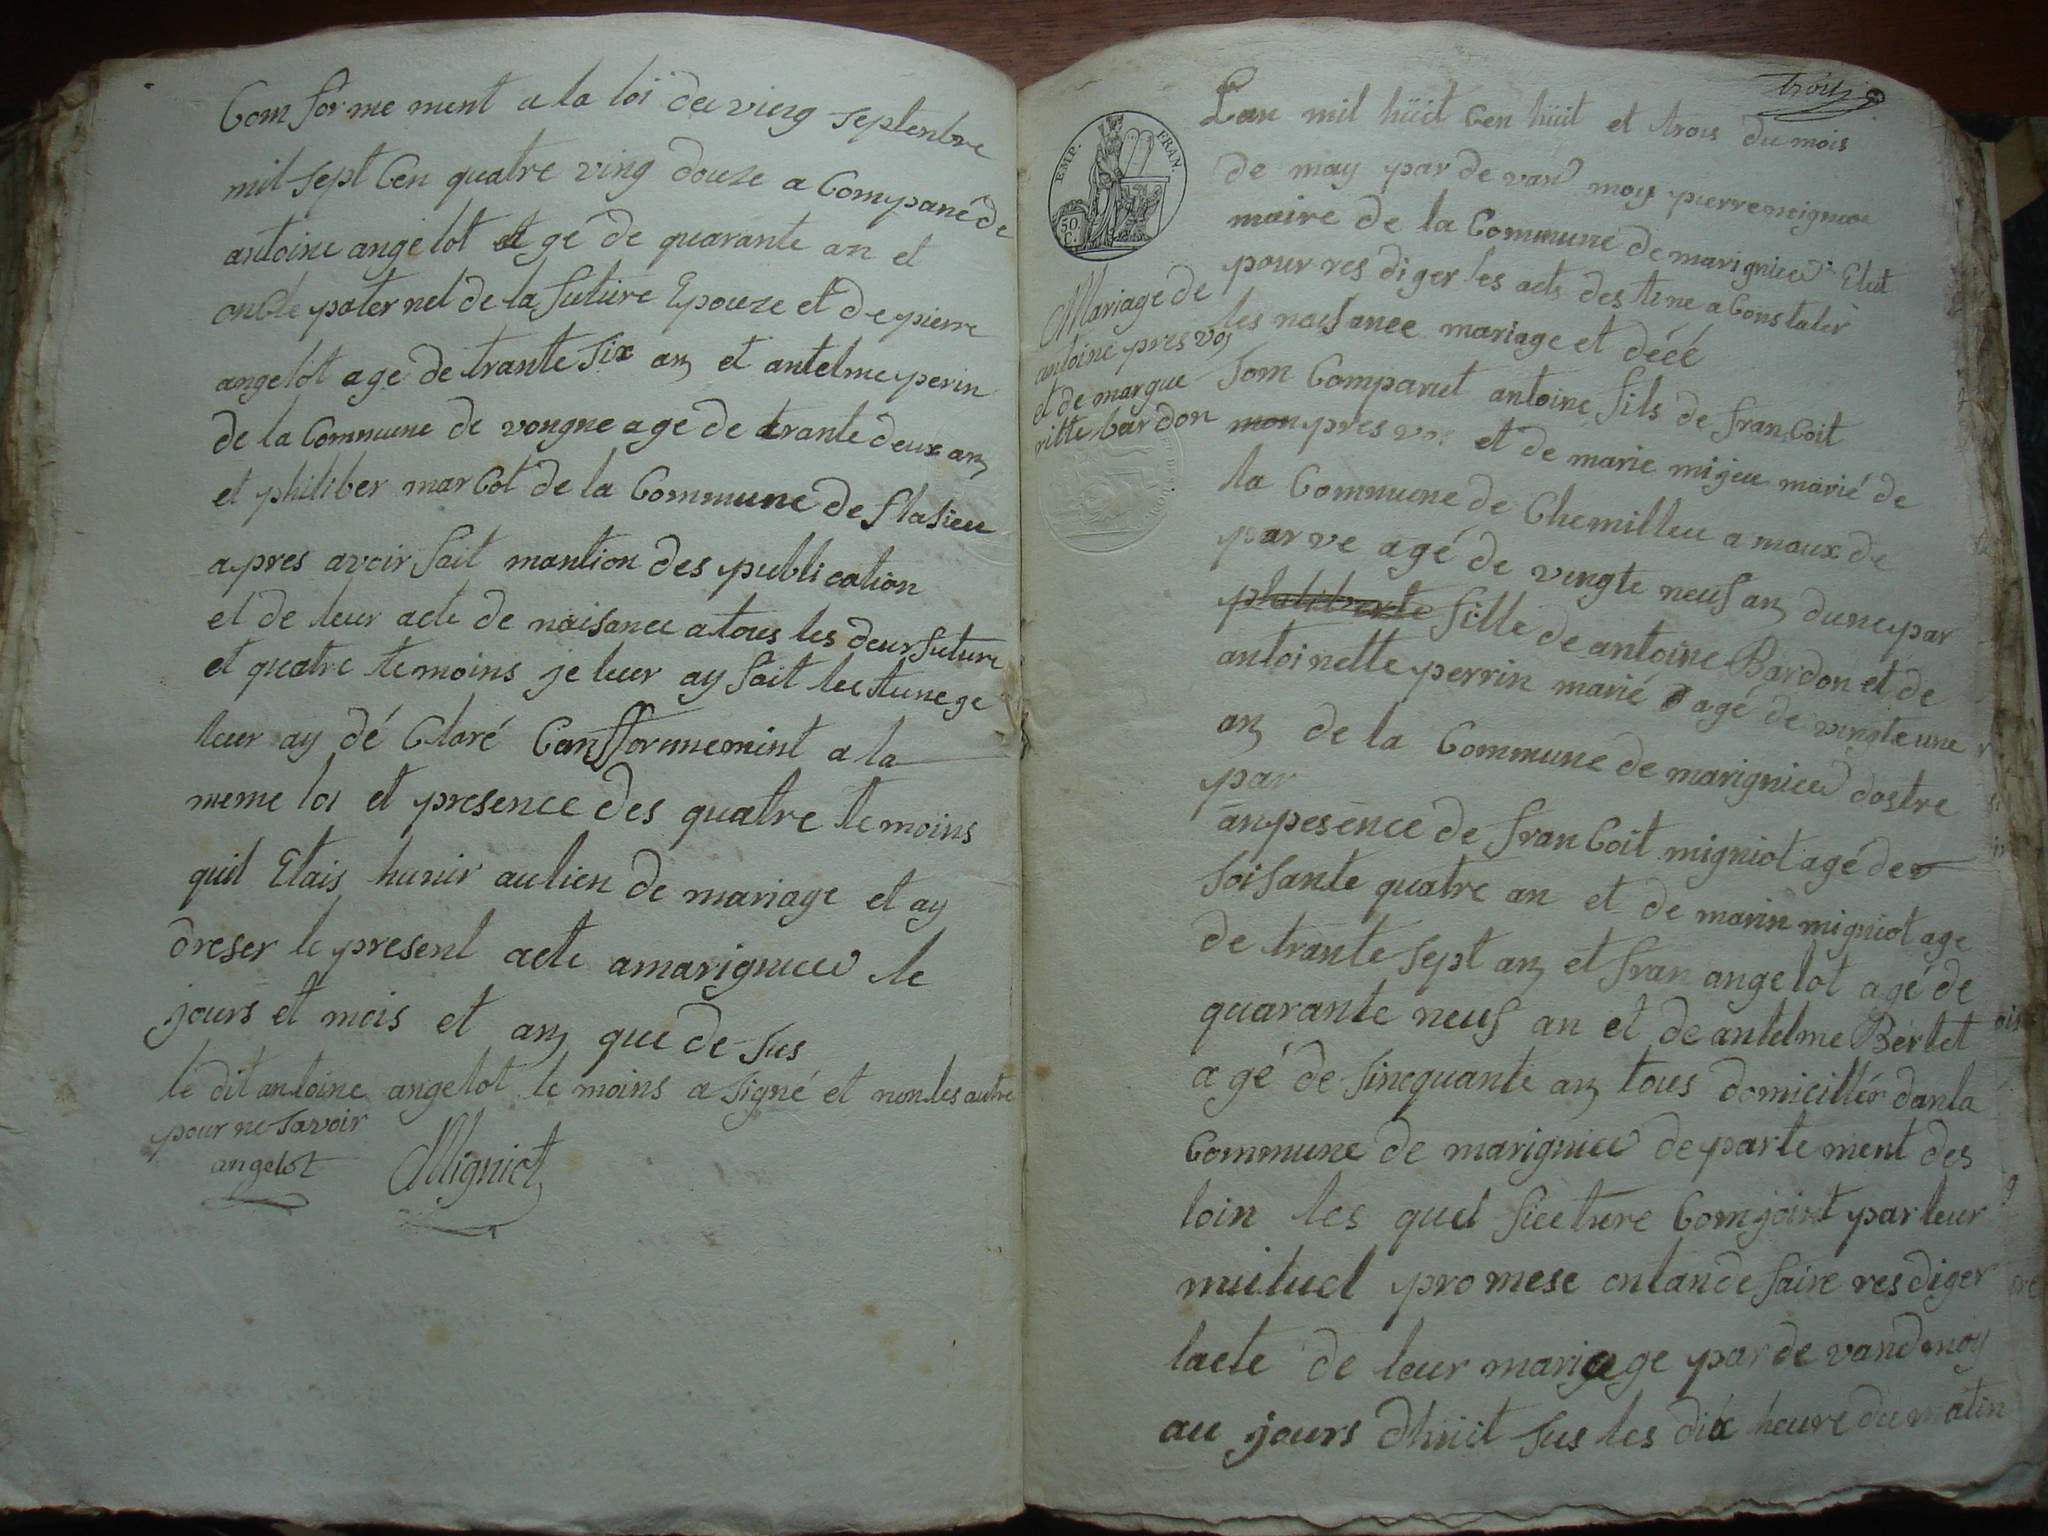 Com for me ment a la loi du ving septenbre
mil sept Cen quatre ving douze a Companéde
antoine angelot agé de quarante an et
oncle paternel de la future Epouze et de pierre
angelot age de trante six an et antelme perin
de la Commune de vongne age de trante deux an
et philiber marCot de la Commune de flasieu
apres avoir fait mantion des publication
et de leur acte de naisance a tous les deux future
et quatre temoins je leur ay fait lecture ge
leur ay dé Claré a la
meme loi et presence des quatre temoins
quil Etais hunir au lieu de mariage et ay
dreser le present acte amarignieu le
jours et mois et an que de sus
le dit antoine angelot te moins a signé et non les autre
pour ne savoir
angelot Migniot
trois
EMP. FRAN.
50. C.
Lan mil huit Cen huit et trois du mois
de may par de van moy pierre
maire de la Commune de marignieu Elut
pour res diger les acts des tine a Constater
les naisance mariage et décé
Mariage de
antoine presvos
et de margue
ritte bardon
som Comparut antoine fils de franCoit
mon presvos et de marie mijeu marié de
la Commune de Chemilleu a maux de
parve agé de vingte neuf an dune par
fille de antoine Bardon et de
antoinette perrin marié agé de vingte une
an de la Commune de marignieu dostre
par
anpesence de franCoit migniot agé de
soisante quatre an et de marin migniot age
de trante sept an et fran angelot agé de
quarante neuf an et de antelme Bertet
agé de sincquante an tous domicillér danla
Commune de marignieu departe ment des
loin les quel future Comjoint par leur
mutuel promese ontande faire res diger
lacte de leur mariage par de vand moy
au jours dhuit sus les dix heure du matin